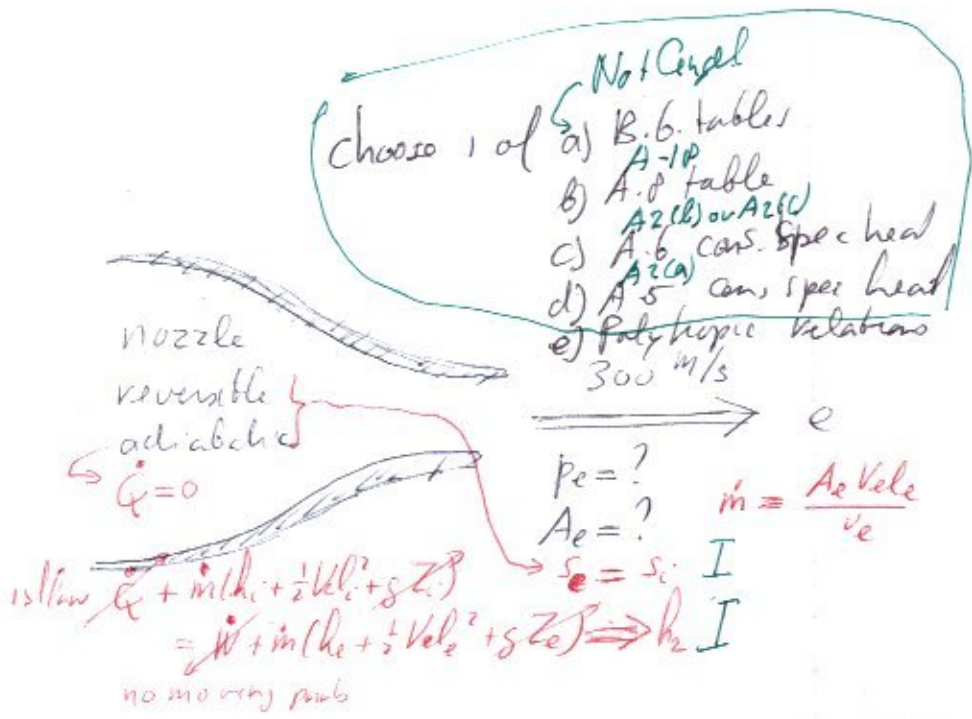 Not Cengel
choose 1 of a) B.6. tables
A-18
b) A.8 table
A2(b) or A2(c)
c) A.6 cons. spec heat
A2(a)
d) A.5 cons, spec heat
e) Polytropic relations
nozzle
reversible
adiabatic
Q̇ = 0
300 m/s
e
pe = ?
Ae = ?
ṁ = Ae Vele / ve
se = si I
1st law Q̇ + ṁ(hi + ½ Veli² + gZi)
= Ẇ + ṁ(he + ½ Vele² + gZe) ⇒ h2 I
no moving parts